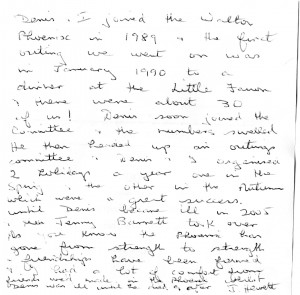 Denis & I joined the Walton
Phoenix in 1989 & the first
outing we went on was
in January 1990 to a
dinner at the Little Fawn
& there were about 30
of us! Denis soon joined the
Committee & the numbers swelled
He then headed up an outings
committee & Denis & I organised
2 holidays a year one in the
Spring & the other in the Autumn
which were a great success.
until Denis became ill in 2005
& when Jenny Barnett took over
As you know the Phoenix has
gone from strength to strength
& friendships have been formed
& I had a lot of comfort from
friends we'd made in the Phoenix
Denis was ill until he died & after